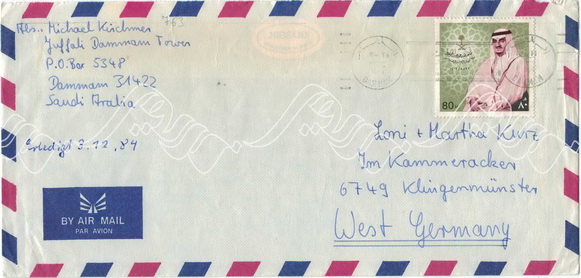 763
Abs.: Michael Kirchner
Juffali Dammam Tower
P.O. Box 5348
Dammam 31422
Saudi Arabia
Erledigt 3.12.84
BY AIR MAIL
PAR AVION
80
٨٠
Lori + Martha Kurz
Im Kammeracker
6749 Klingenmünster
West Germany